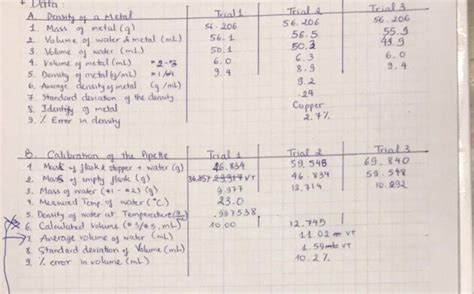 Data:
A. Density of a Metal Trial 1 Trial 2 Trial 3
1. Mass of metal (g) 56.206 56.206 56.206
2. Volume of water & metal (mL) 56.1 56.5 55.9
3. Volume of water (mL) 50.1 50.2 49.9
4. Volume of metal (mL) 6.0 6.3 6.0
5. Density of metal (g/mL) 9.4 8.9 9.4
6. Average density of metal (g/mL) 9.2
7. Standard deviation of the density .24
8. Identity of metal Copper
9. % Error in density 2.7%
B. Calibration of the Pipette Trial 1 Trial 2 Trial 3
1. Mass of flask & stopper + water (g) 46.834 59.548 69.840
2. Mass of empty flask (g) 36.857 VT 46.834 59.548
3. Mass of water (#1 - #2) (g) 9.977 12.714 10.292
4. Measured Temp. of water (°C) 23.0
5. Density of water at Temperature .997538
6. Calculated Volume (#3/#5, mL) 10.00 12.745
7. Average volume of water (mL) 11.02 VT
8. Standard deviation of Volume (mL) 1.54 VT
9. % error in volume (mL) 10.2%